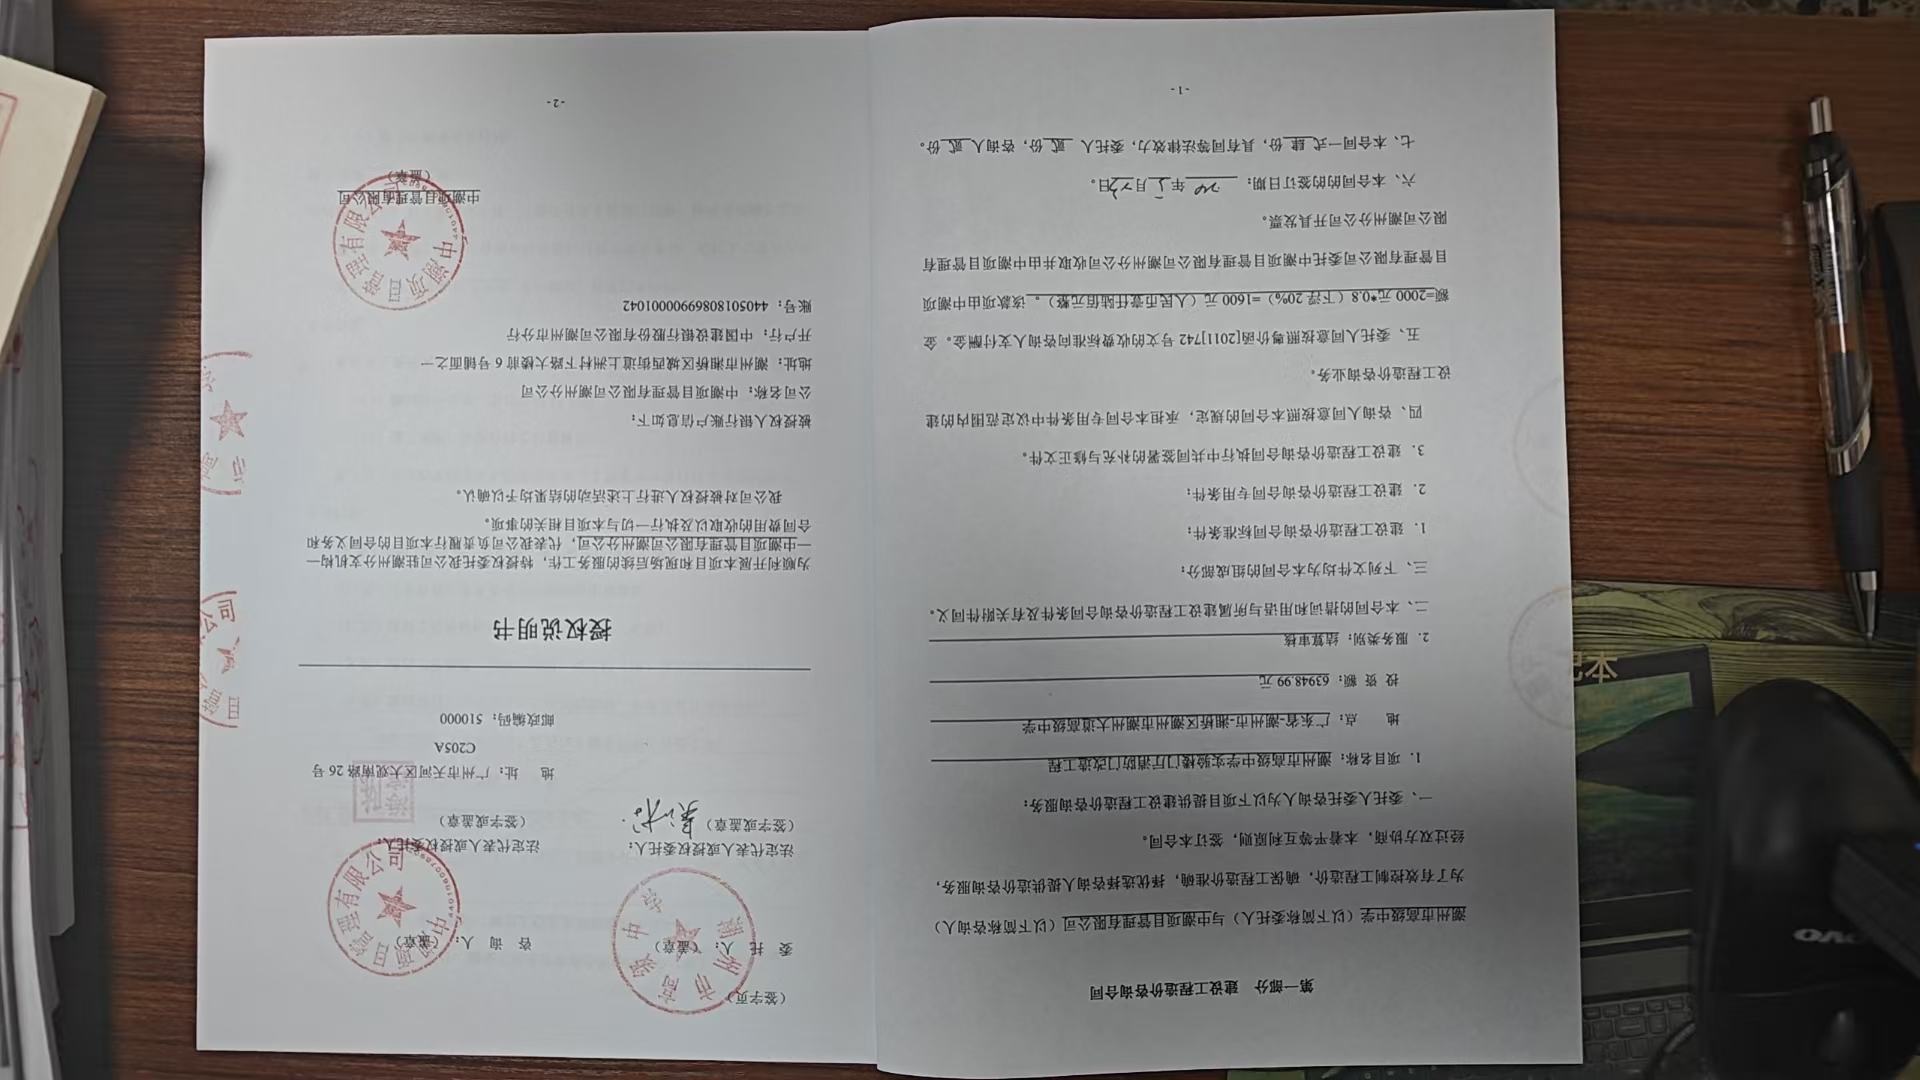 第一部分 建设工程造价咨询合同
潮州市高级中学（以下简称委托人）与中潮项目管理有限公司（以下简称咨询人）
为了有效控制工程造价，确保工程造价准确，择优选择咨询人提供造价咨询服务，
经过双方协商，本着平等互利原则，签订本合同。
一、委托人委托咨询人为以下项目提供建设工程造价咨询服务：
1. 项目名称：潮州市高级中学实验楼门厅消防门改造工程
地 点：广东省-潮州市-湘桥区潮州市潮州大道高级中学
投 资 额：63948.99 元
2. 服务类别：结算审核
二、本合同的措词和用语与所属建设工程造价咨询合同条件及有关附件同义。
三、下列文件均为本合同的组成部分：
1. 建设工程造价咨询合同标准条件；
2. 建设工程造价咨询合同专用条件；
3. 建设工程造价咨询合同执行中共同签署的补充与修正文件。
四、咨询人同意按照本合同的规定，承担本合同专用条件中议定范围内的建
设工程造价咨询业务。
五、委托人同意按照粤价函[2011]742 号文的收费标准向咨询人支付酬金。金
额=2000 元*0.8（下浮 20%）=1600 元（人民币壹仟陆佰元整）。该款项由中潮项
目管理有限公司委托中潮项目管理有限公司潮州分公司收取并由中潮项目管理有
限公司潮州分公司开具发票。
六、本合同的的签订日期： 年 月 日。
七、本合同一式 肆 份，具有同等法律效力，委托人 贰 份，咨询人 贰 份。
-1-
（签字页）
委 托 人：（盖章）
咨 询 人：（盖章）
法定代表人或授权委托人：
（签字或盖章）
法定代表人或授权委托人：
（签字或盖章）
地 址：广州市天河区大观南路 26 号
C205A
邮政编码：510000
授权说明书
为顺利开展本项目和现场后续的服务工作，特授权委托我公司驻潮州分支机构—
—中潮项目管理有限公司潮州分公司，代表我公司负责履行本项目的合同义务和
合同费用的收取以及执行一切与本项目相关的事项。
我公司对被授权人进行上述活动的结果均予以确认。
被授权人银行账户信息如下：
公司名称：中潮项目管理有限公司潮州分公司
地址：潮州市湘桥区城西街道上洲村下路大楼前 6 号铺面之一
开户行：中国建设银行股份有限公司潮州市分行
账号：44050180869900001042
中潮项目管理有限公司
（盖章）
-2-
潮州市高级中学
中潮项目管理有限公司
中潮项目管理有限公司